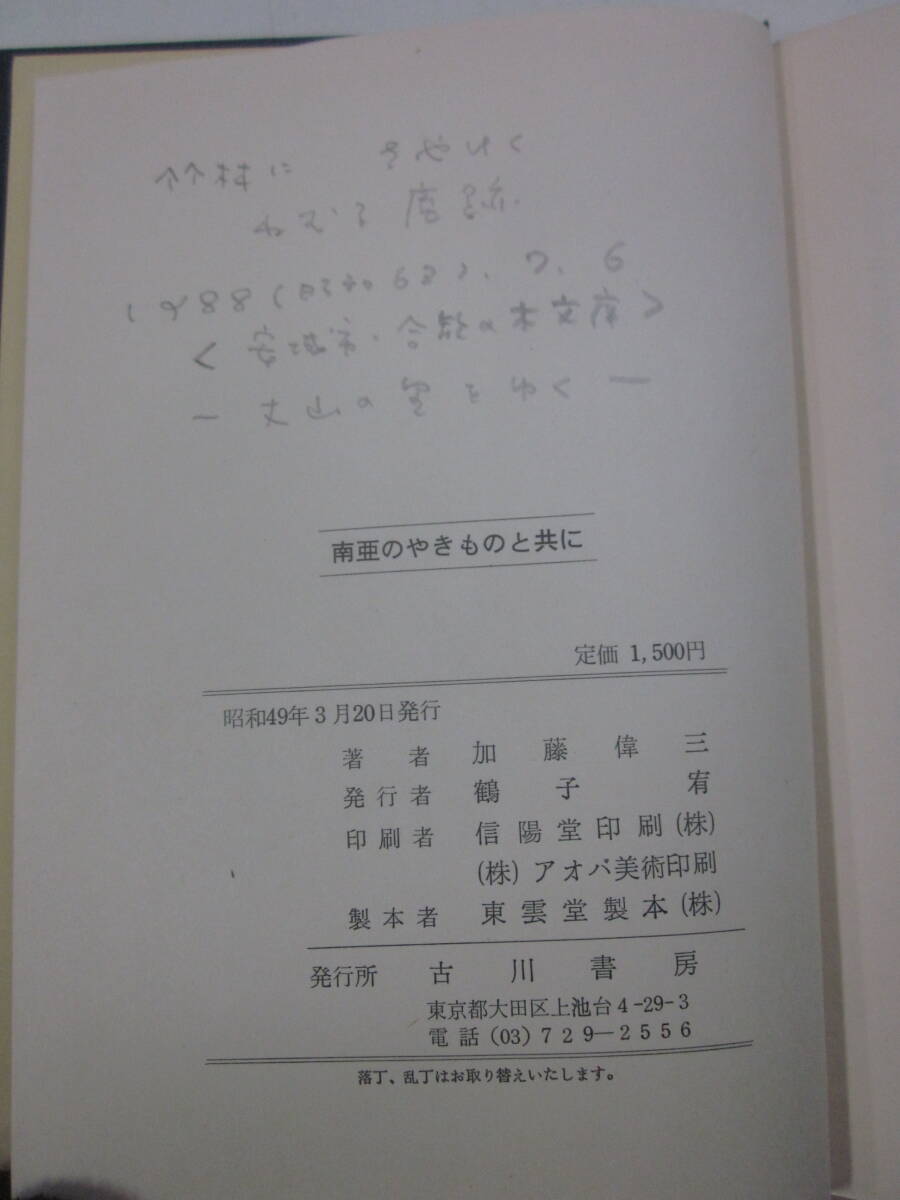 竹林に さやけく
ねむる 窯跡
1988(昭和63)、7、6
<安城市・合歓の木文庫>
― 丈山の里をゆく ―
南亜のやきものと共に
定価 1,500円
昭和49年3月20日発行
著者 加藤偉三
発行者 鶴子宥
印刷者 信陽堂印刷(株)
(株)アオバ美術印刷
製本者 東雲堂製本(株)
発行所 古川書房
東京都大田区上池台4-29-3
電話 (03)729―2556
落丁、乱丁はお取り替えいたします。